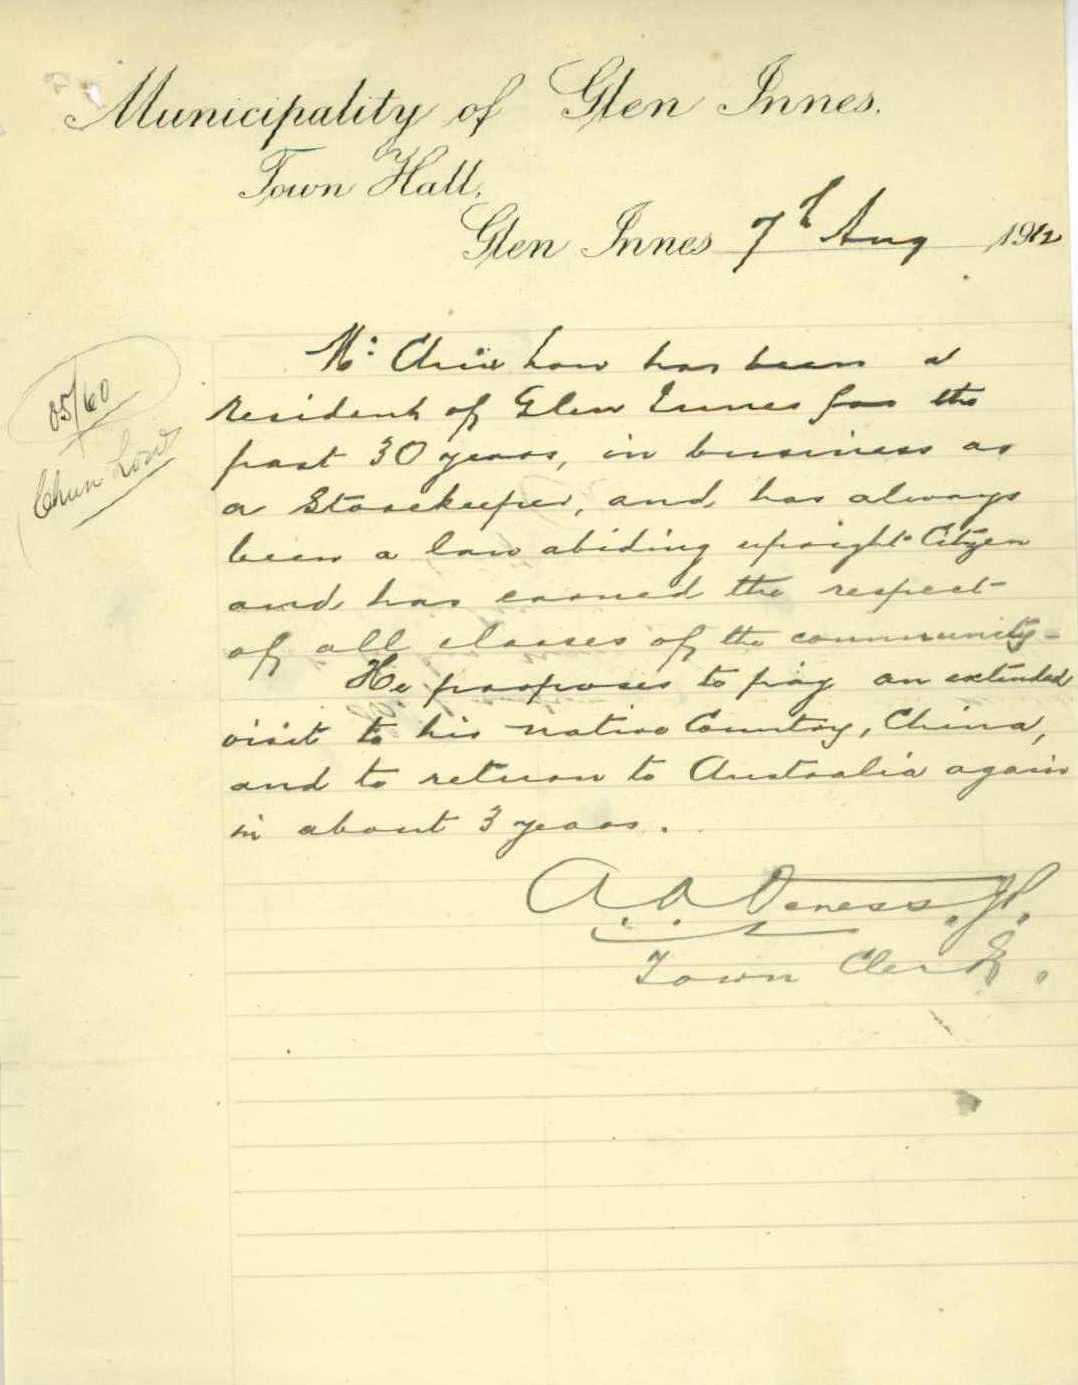 Municipality of Glen Innes.
Town Hall,
Glen Innes 7th Aug 1912
05/60
Chun
Mr: has been a
resident of Glen Innes for the
past 30 years, in business as
a Storekeeper, and, has always
been a law abiding upright Citizen
and, has earned the respect
of all classes of the community -
He proposes to pay an extended
visit to his native Country, China,
and to return to Australia again
in about 3 years.
A. A. J.P.
Town Clerk.